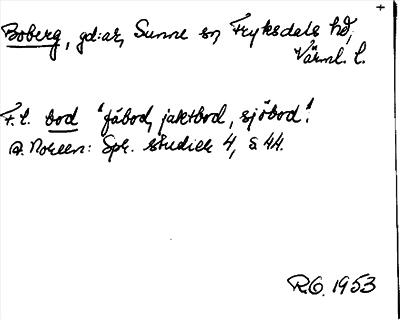 +
Boberg, gd:ar, Sunne sn, Fryksdals hd,
Värml. l.
F.l. bod "fäbod, jaktbod, sjöbod".
A. Noreen: Spr. studier 4, s 44.
R.O. 1953